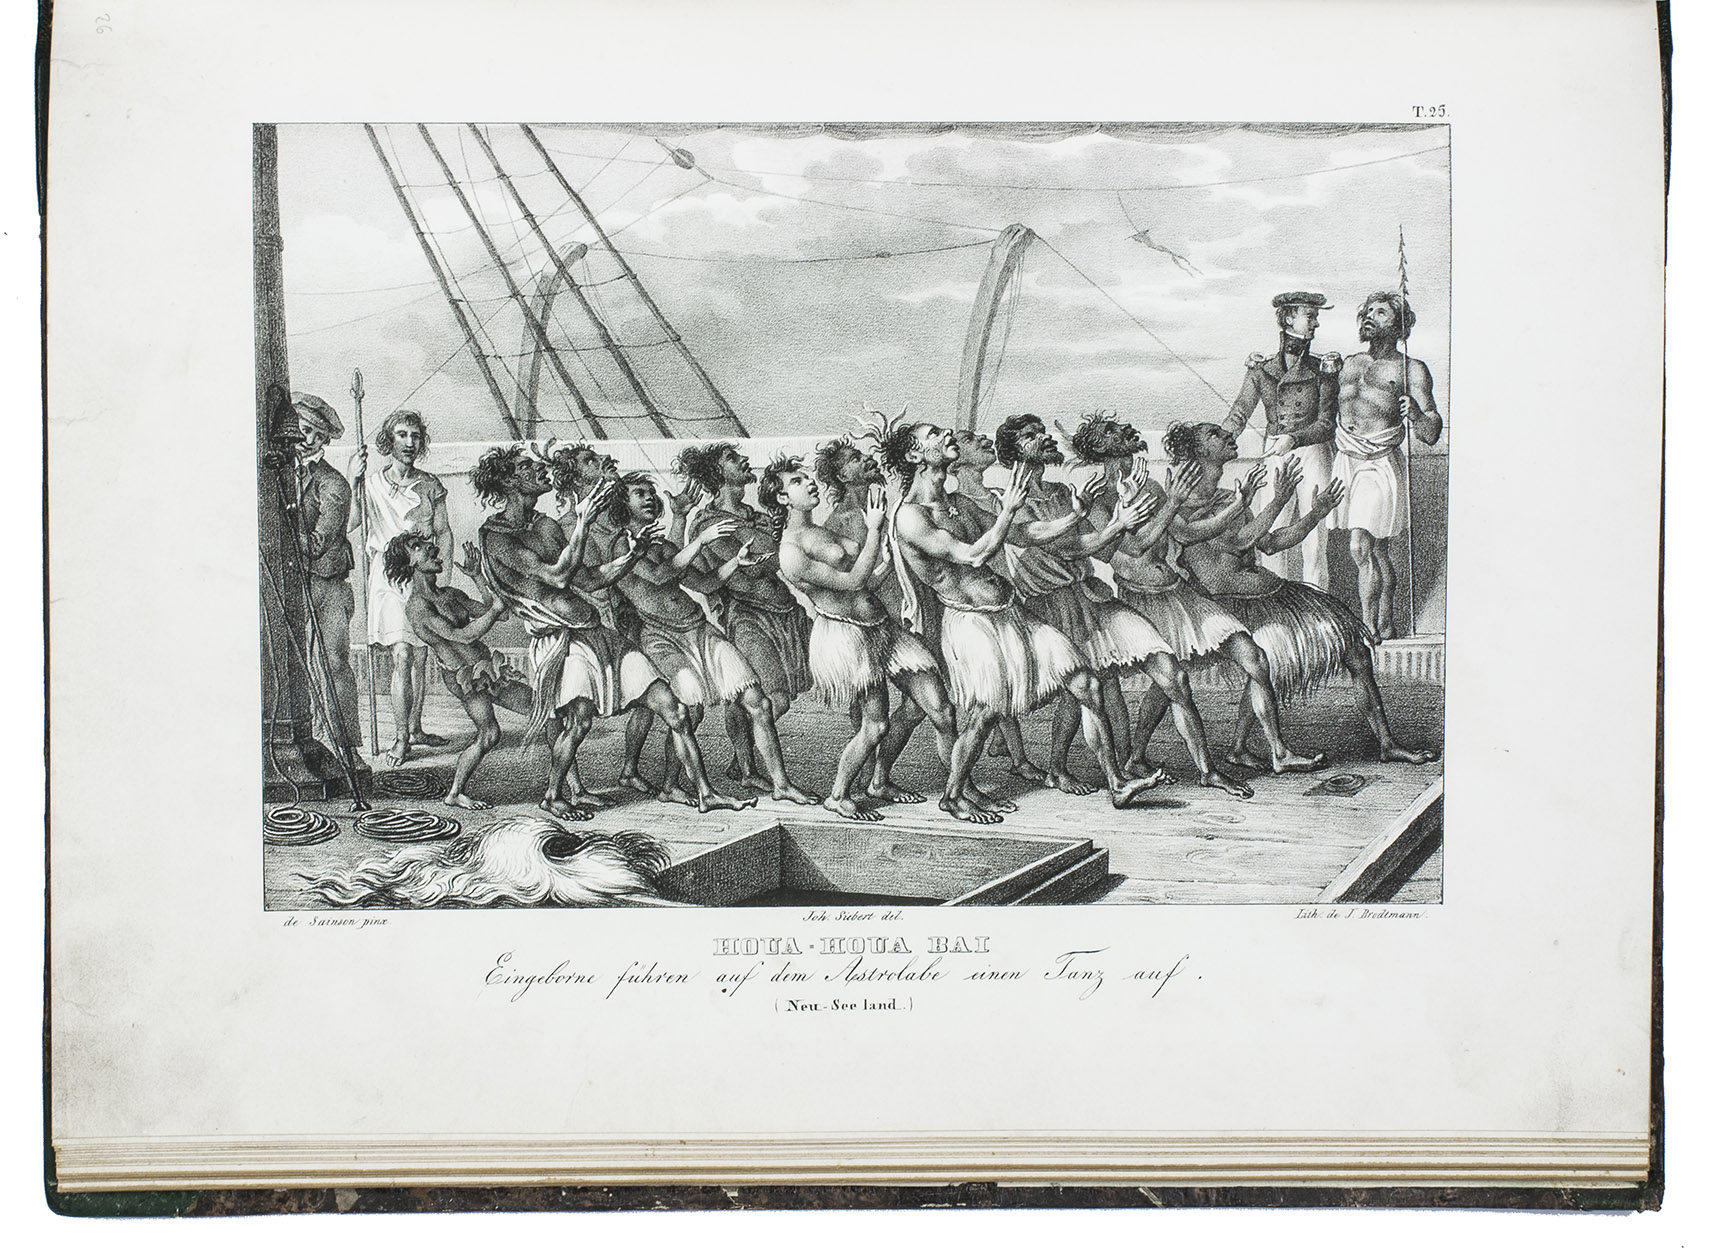 26
T. 25.
de Sainson pinx
Joh. Siebert del.
Lith. de J. Brodtmann.
HOUA-HOUA BAI
Eingeborne führen auf dem Astrolabe einen Tanz auf.
(Neu-Seeland.)